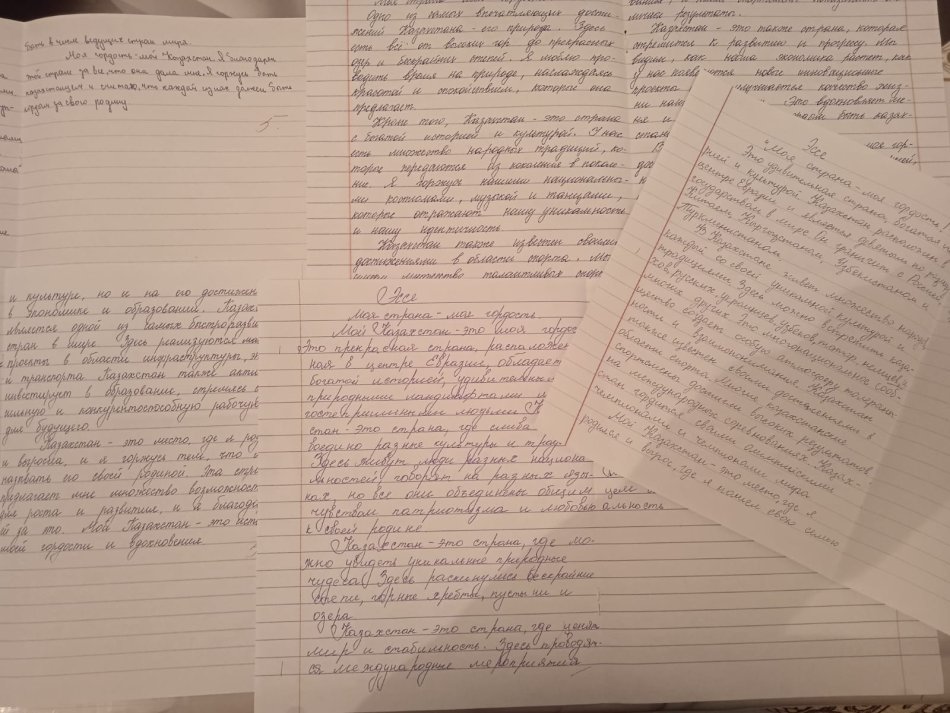 быть в числе ведущих стран мира.
Моя гордость - мой Казахстан. Я благодарен
этой стране за все, что она дала мне. Я горжусь быть
казахстанцем и считаю, что каждый из нас должен быть
гордым за свою родину.
5
Одно из самых впечатляющих дости-
жений Казахстана - его природа. Здесь
есть все: от высоких гор до прекрасных
озер и бескрайних степей. Я люблю про-
водить время на природе, наслаждаясь
красотой и спокойствием, которые она
предлагает.
Кроме того, Казахстан - это страна
с богатой историей и культурой. У нас
есть множество народных традиций, ко-
торые передаются из поколения в поколе-
ние. Я горжусь нашими национальны-
ми костюмами, музыкой и танцами,
которые отражают нашу уникальность
и нашу идентичность.
Казахстан также известен своими
достижениями в области спорта. Мы
Казахстан - это также страна, которая
стремится к развитию и прогрессу. Мы
видим, как наша экономика растет, как
у нас появляются новые инновационные
проекты улучшается качество жиз-
ни Это вдохновляет
быть казах-
Эссе
"Моя страна - моя гордость"
Это удивительная страна, богатая исто-
рией и культурой. Казахстан расположен в
центре Евразии и является девятым по
государством в мире. Он граничит с Россией,
Китаем, Кыргызстаном, Узбекистаном и
Туркменистаном.
В Казахстане живет множество народов,
каждый со своей уникальной культурой и
традициями. Здесь можно встретить каза-
хов, русских, украинцев, узбеков, татар, немцев и
многих других. Это многонациональное сооб-
щество создает особую атмосферу толерант-
ности и взаимопонимания. Казахстан
также известен своими достижениями в
области спорта. Многие казахстанские
спортсмены достигли высоких результатов
на международных соревнованиях. Казах-
стан гордится своими олимпийскими
чемпионами и чемпионами мира.
Мой Казахстан - это место, где я
родился и вырос, где я нашел свою семью
и культуре, но и на его достижен
в экономике и образовании. Казах
является одной из самых быстроразви
стран в мире. Здесь реализуются
проекты в области инфраструктуры,
и транспорта. Казахстан также акти
инвестирует в образование, стремясь
сильную и конкурентоспособную рабочую
для будущего.
Казахстан - это место, где я ро
и выросла, и я горжусь тем, что
назвать его своей родиной. Эта стр
предлагает мне множество возможност
для роста и развития, и я благод
ей за это. Мой Казахстан - это ист
моей гордости и вдохновения.
Эссе
Моя страна - моя гордость.
Мой Казахстан - это моя гордос
Это прекрасная страна, расположен
ная в центре Евразии, обладает
богатой историей, удивительны
природными ландшафтами и
гостеприимными людьми. К
стан - это страна, где слиба
воедино разные культуры и трад
Здесь живут люди разных национа
льностей говорят на разных язы-
ках, но все они объединены общим
чувством патриотизма и любовью
к своей родине.
Казахстан - это страна, где мо-
жно увидеть уникальные природные
чудеса. Здесь раскинулись бескрайние
степи, горные хребты, пустыни и
озера.
Казахстан - это страна, где ценят
мир и стабильность. Здесь проводят-
ся международные мероприятия